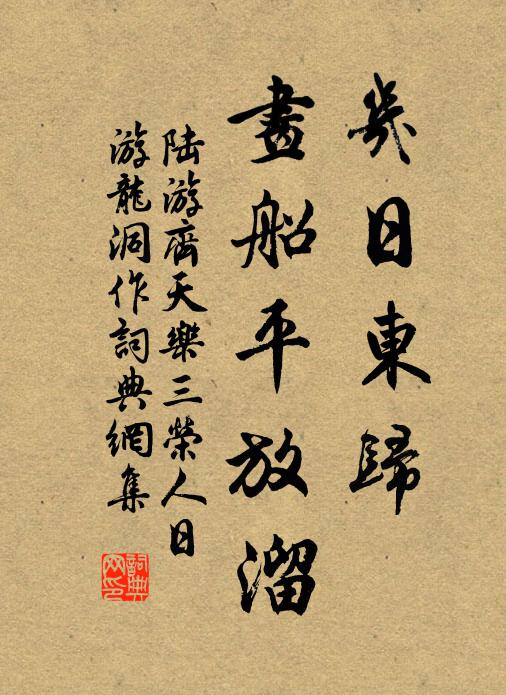 幾日東歸
畫船平放溜
陸游齊天樂三榮人日
游龍洞作詞典網集
詞典
网印